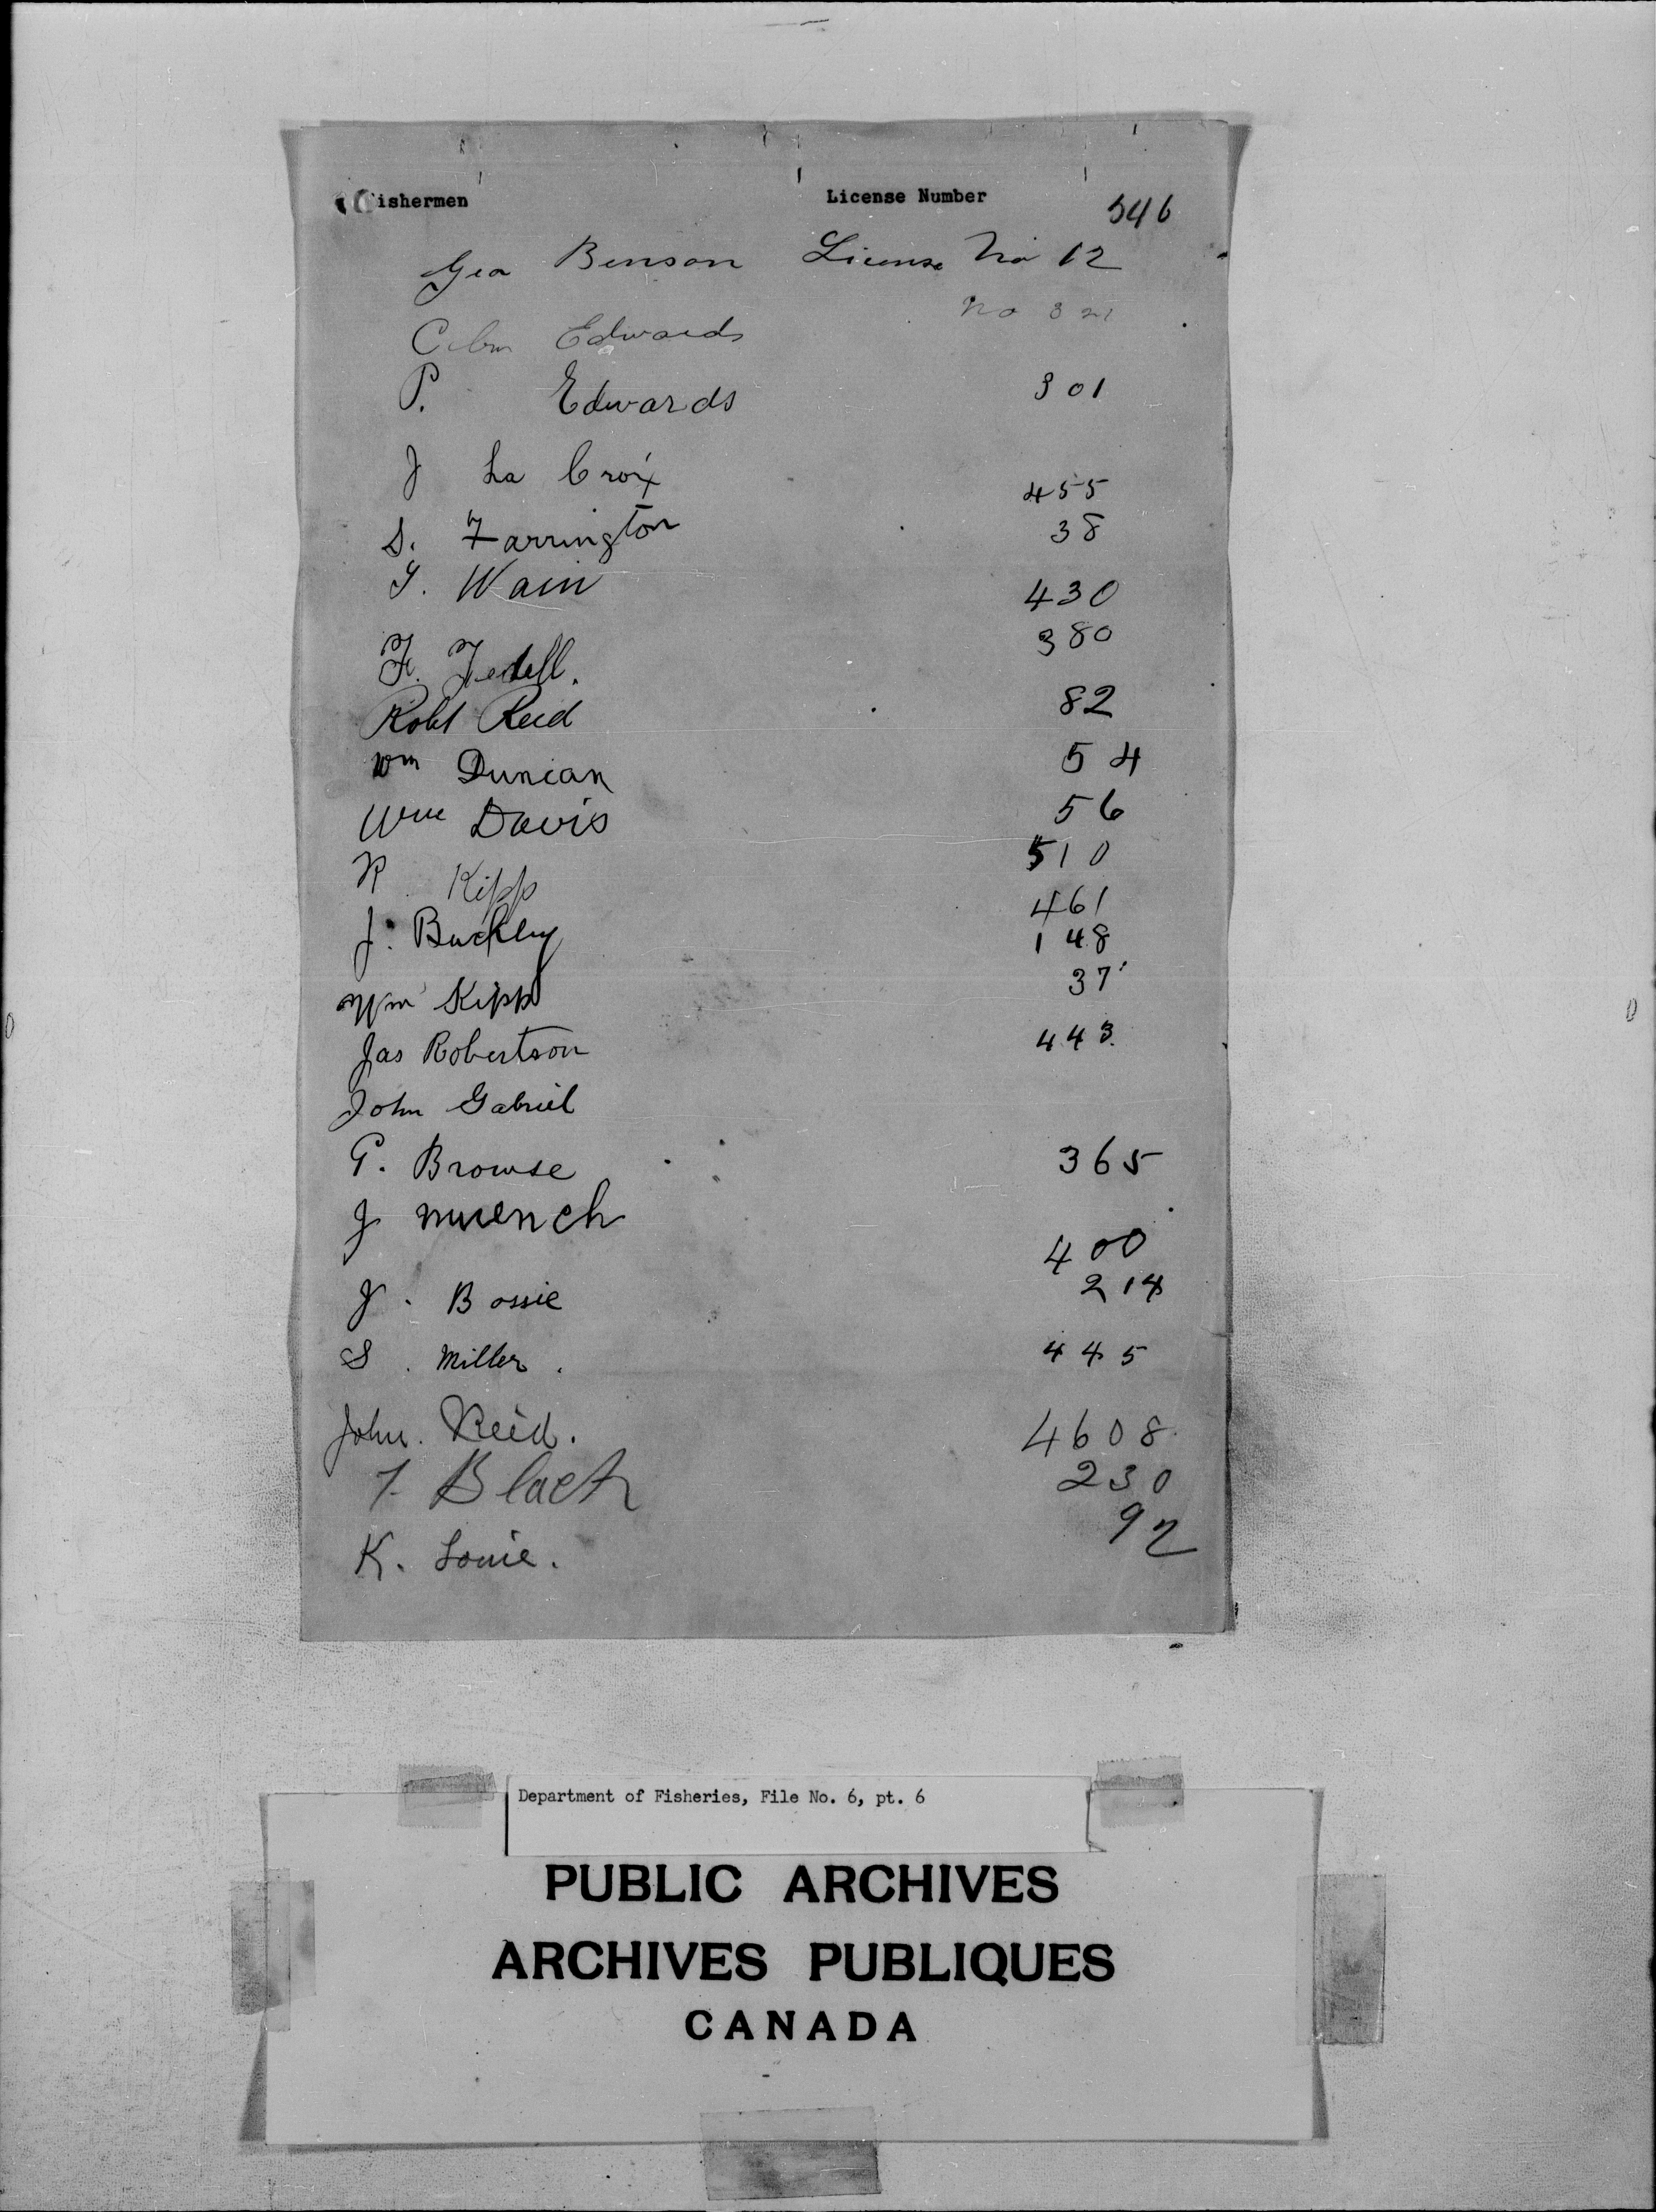 Fishermen License Number 546
Geo Benson License No 12
Edwards No 321
P. Edwards 301
J La Croix 455
S. Farrington 38
Wain 430
F. 380
Robt Reid 82
Wm Duncan 54
Wm Davis 56
R Kipp 510
J. Buckley 461
148
Wm Kipp 37
Jas Robertson 443
John Gabriel
G. Browse 365
J muench
400
J. Bossie 214
S. Miller. 445
John. Reid. 4608
Black 230
K. Louie. 92
Department of Fisheries, File No. 6, pt. 6
PUBLIC ARCHIVES
ARCHIVES PUBLIQUES
CANADA